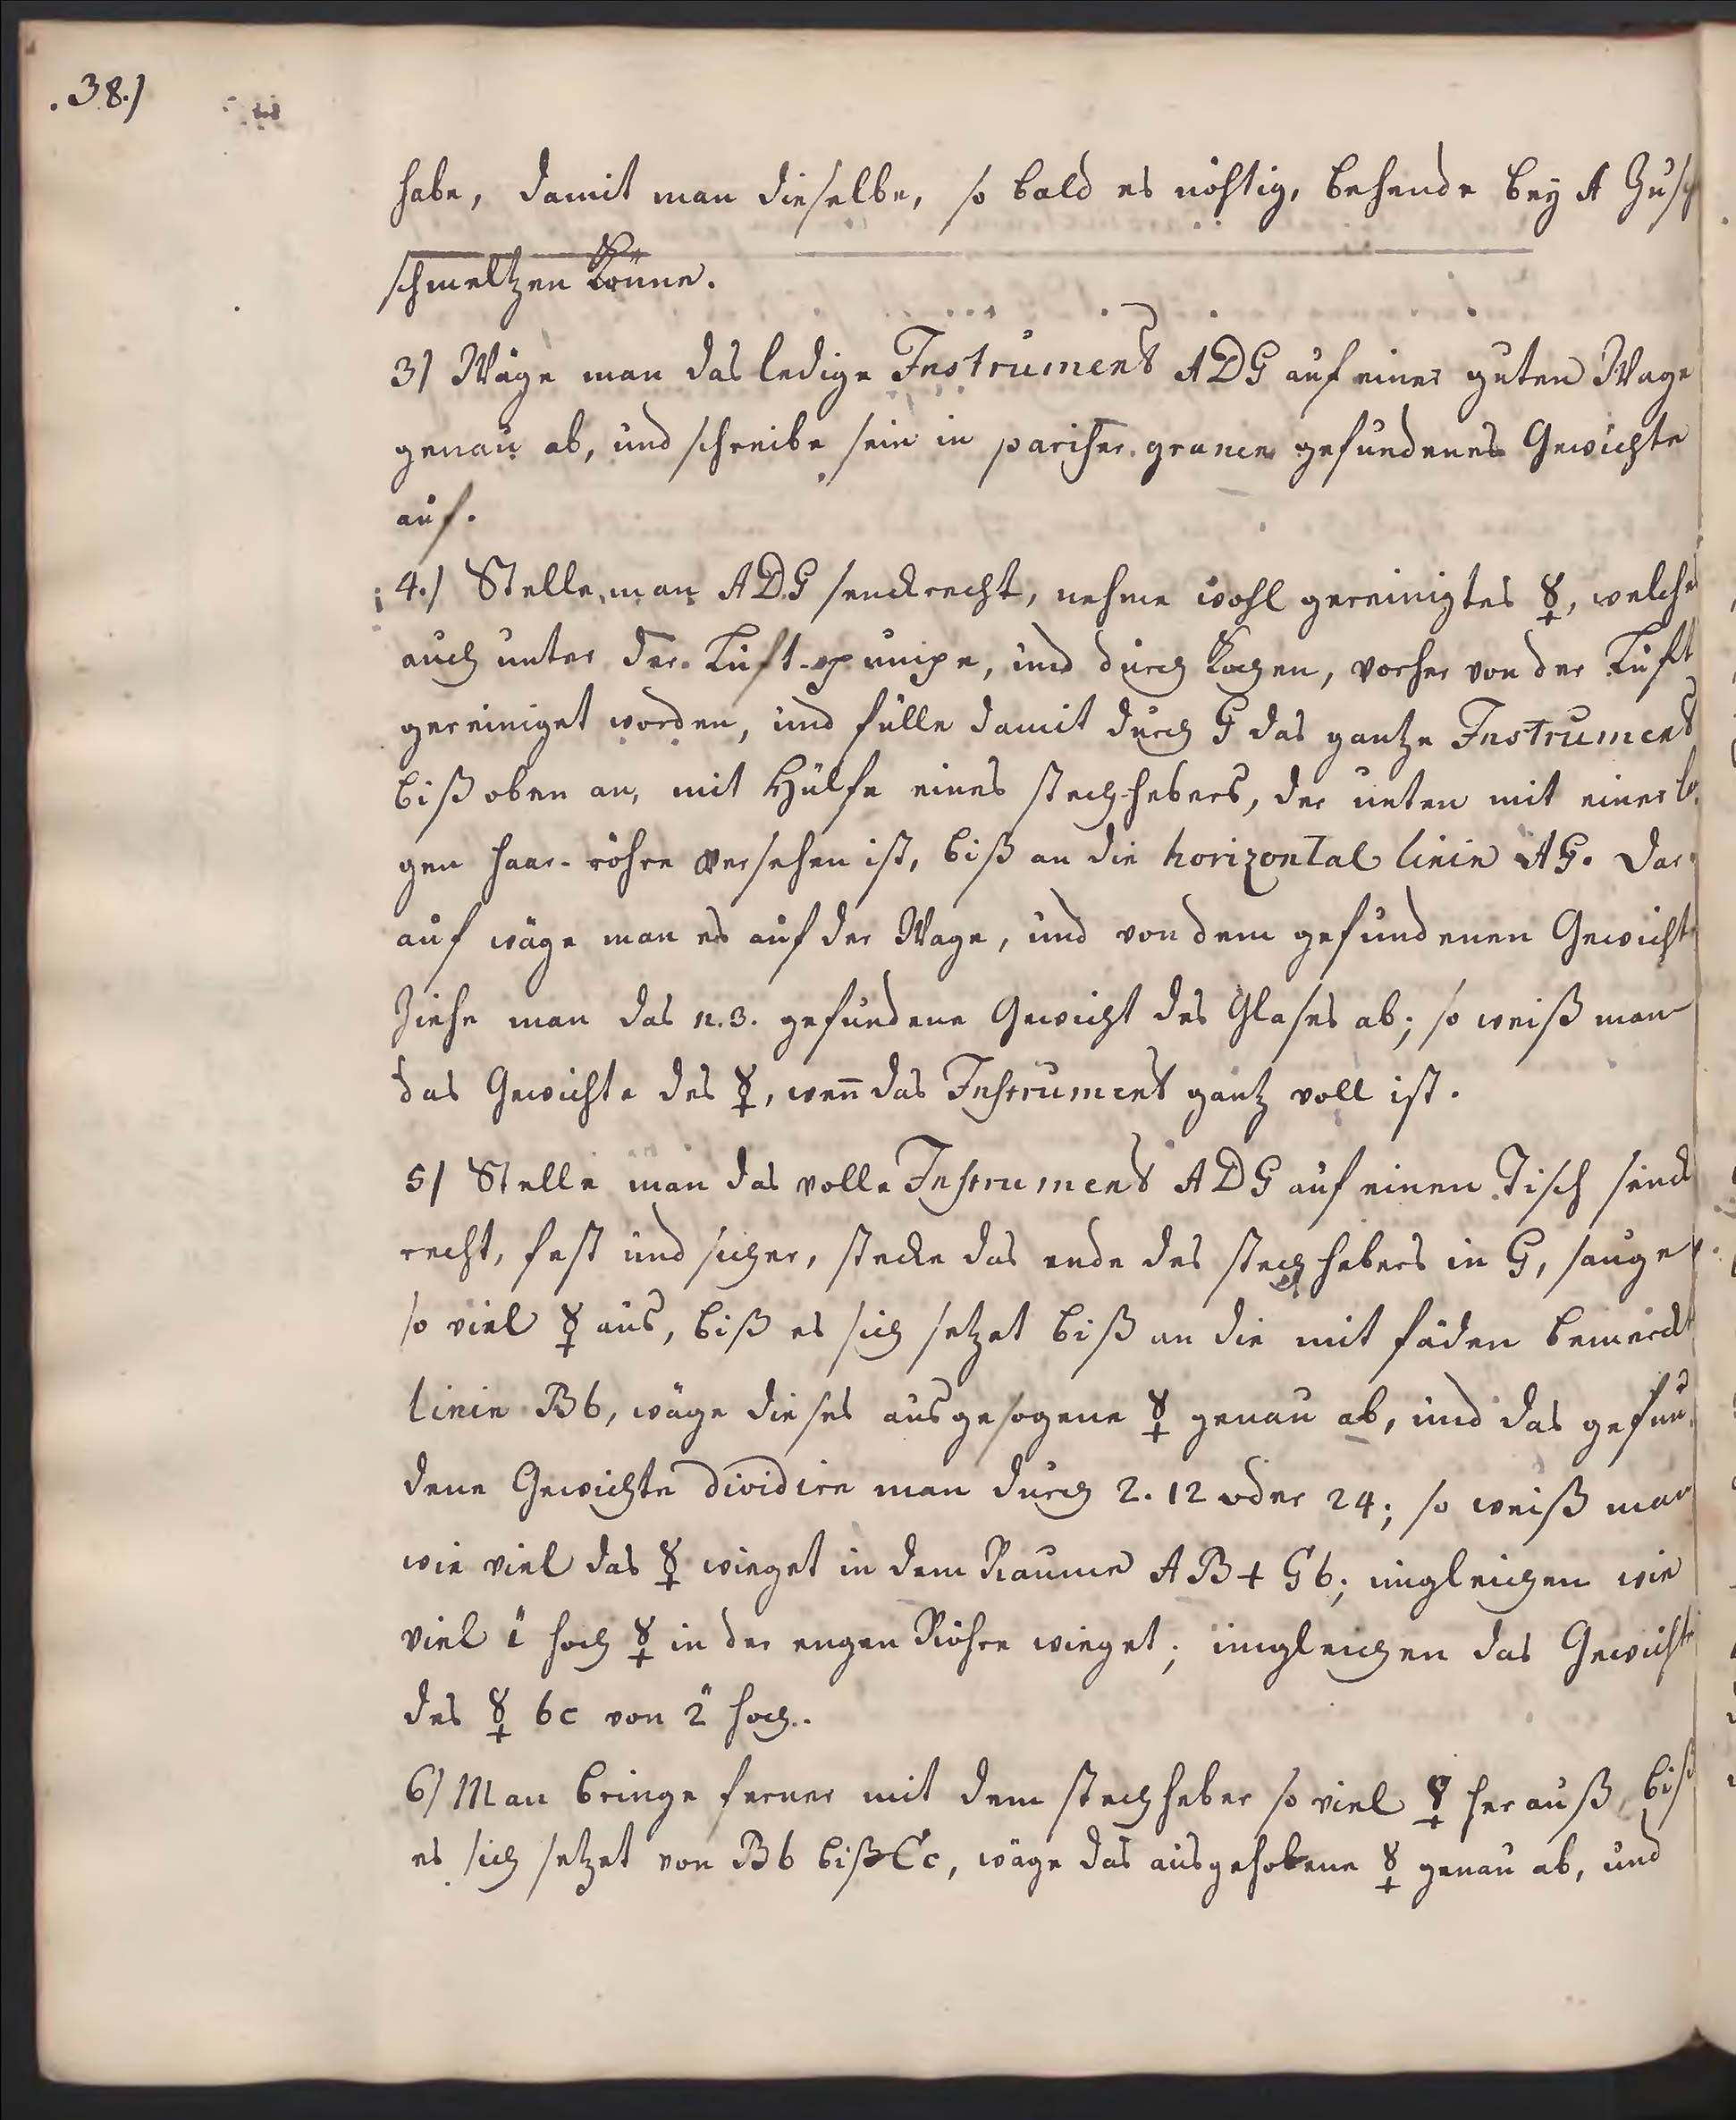 .38.)
habe, damit man dieselbe, so bald es nöhtig, behende bey A Zusch
schmeltzen könne.
3) Wäge man das ledige Instrument ADG auf einer guten Wage
genau ab, und schreibe sein in pariser. granen gefundenes Gewichte
auf.
4.) Stelle man ADG senckrecht, nehme wohl gereinigtes ☿, welches
auch unter der Luft-pumpe, und durch Kochen, vorher von der Luft
gereiniget worden, und fülle damit durch G das gantze Instrument
biß oben an, mit Hülfe eines stech-hebers, der unten mit einer
gen haar-röhre versehen ist, biß an die horizontal linie AG. Dar-
auf wäge man es auf der Wage, und von dem gefundenen Gewicht
Ziehe man das n. 3. gefundene Gewicht des Glases ab; so weiß man
das Gewichte des ☿, wen̄ das Instrument gantz voll ist.
5) Stelle man das volle Instrument ADG auf einen Tisch senck
recht, fest und sicher, stecke das ende des stechhebers in G, sauge
so viel ☿ aus, biß es sich setzet biß an die mit fäden bemerckt
linie Bb, wäge dieses ausgesogene ☿ genau ab, und das gefun-
dene Gewichte dividire man durch 2. 12 oder 24; so weiß man
wie viel das ☿ wieget in dem Raume AB + Gb; imgleichen wie
viel 1" hoch ☿ in der engen Röhre wieget; imgleichen das Gewicht
des ☿ bc von 2" hoch.
6) Man bringe ferner mit dem stechheber so viel ☿ herauß, biß
es sich setzet von Bb biß Cc, wäge das ausgehobene ☿ genau ab, und